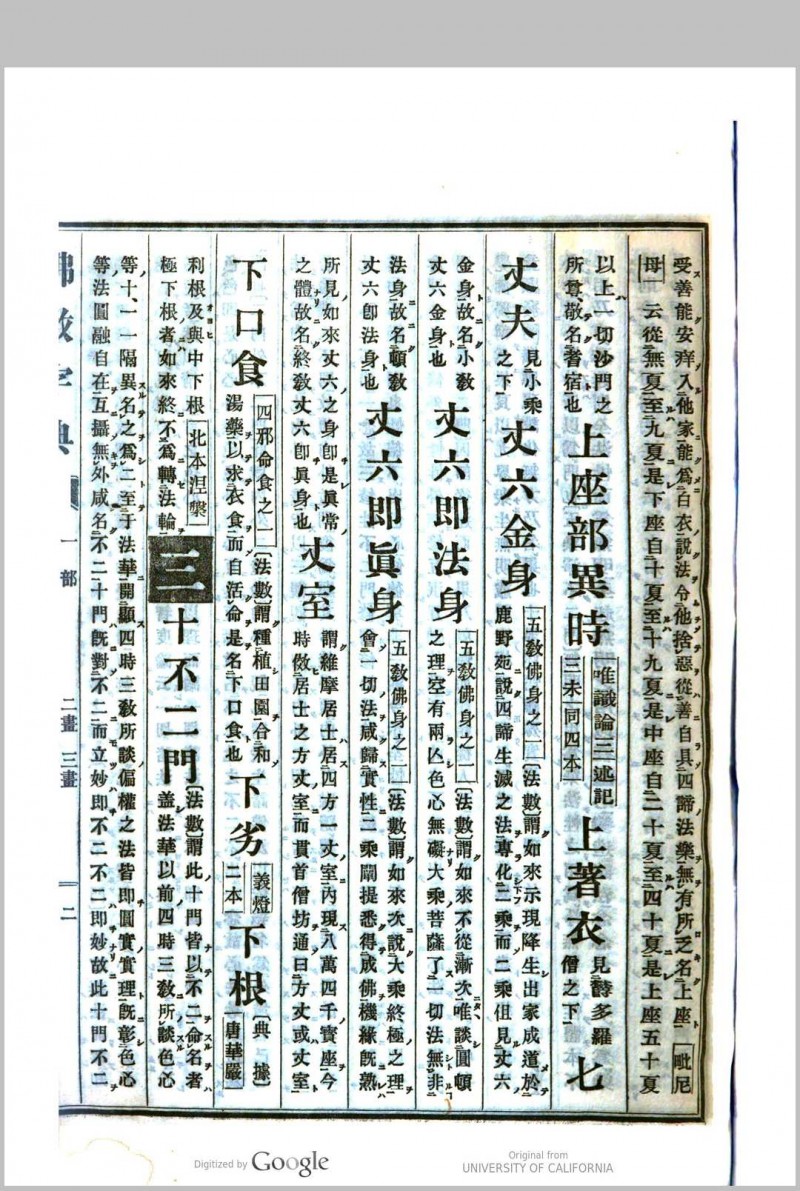 受善能安痒入他家能爲白衣說法令他捨惡從善自具四諦法樂無有所乏名上座 毗尼
母 云從無夏至九夏是下座自十夏至十九夏是中座自二十夏至四十夏是上座五十夏
以上一切沙門之
所尊敬名耆宿也
上座部異時
唯識論三述記
三末同四本
上著衣
見欝多羅
僧之下
七
丈夫
見小乘
之下
丈六金身
五敎佛身之一 〔法數〕謂如來示現降生出家成道於
鹿野苑說四諦生滅之法專化二乘而二乘但見丈六
金身故名小敎
丈六金身也
丈六即法身
五敎佛身之一 〔法數〕謂如來不從漸次唯談圓頓
之理空有兩亾色心無礙大乘菩薩了一切法無非
法身故名頓敎
丈六卽法身也
丈六即眞身
五敎佛身之一 〔法數〕謂如來次說大乘終極之理
會一切法咸歸實性二乘闡提悉得成佛機緣旣熟
所見如來丈六之身卽是眞常
之體故名終敎丈六卽眞身也
丈室
謂維摩居士居四方一丈室內現八萬四千寳座今
時倣居士之方丈室而貫首僧坊通曰方丈或丈室
下口食
四邪命食之一 〔法數〕謂種植田園合和
湯藥以求衣食而自活命是名下口食也
下劣
義燈
二本
下根
〔典據〕
唐華嚴
利根及與中下根 北本涅槃
極下根者如來終不爲轉法輪
三
十不二門
〔法數〕謂此十門皆以不二命名者
蓋法華以前四時三敎所談色心
等十、一一隔異名之爲二至于法華開顯四時三敎所談偏權之法皆卽圓實實理旣彰色心
等法圓融自在互攝無外咸名不二十門旣對不二而立妙卽不二不二卽妙故此十門不二
一部
二畫 三畫
二
Digitized by Google
Original from
UNIVERSITY OF CALIFORNIA